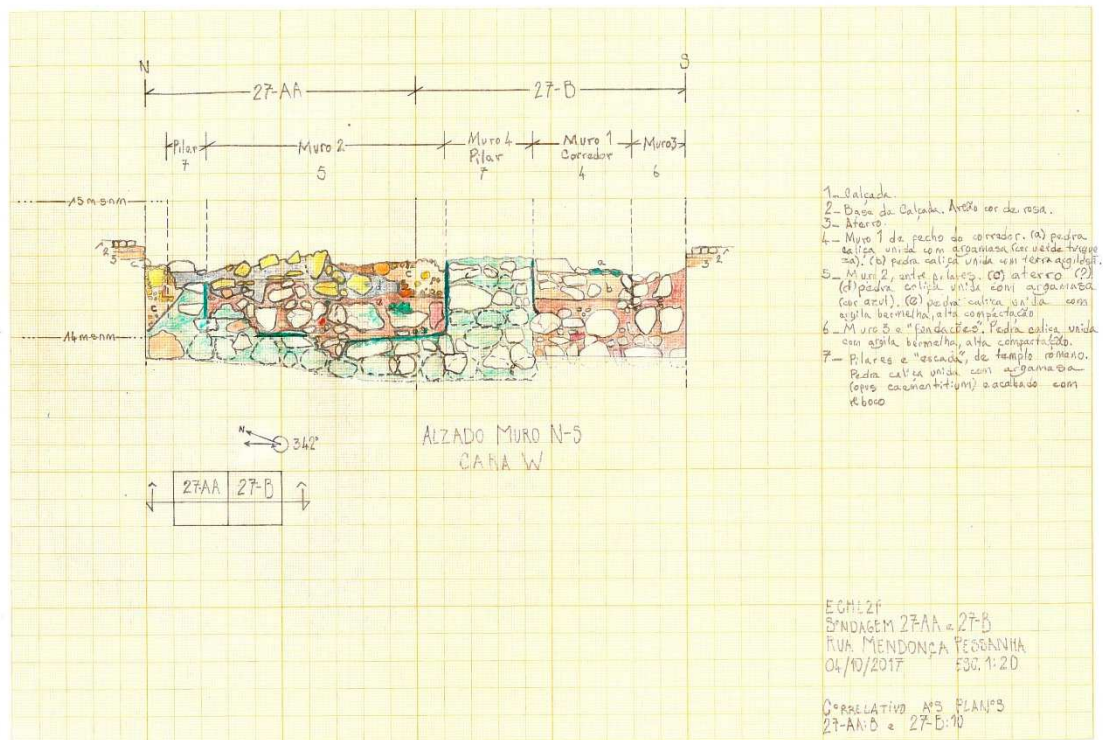 N S
27-AA 27-B
Pilar Muro 2 Muro 4 Muro 1 Muro3
Pilar Corredor
7 5 7 4 6
15 m.s.n.m
14 m.s.n.m
1 2 3
1 2 3
c c c d e a b
1_ Calçada.
2_ Base da Calçada. Areão cor de rosa.
3_ Aterro.
4_ Muro 1 de fecho do corredor. (a) pedra
caliça unida com argamasa (cor verde turque
sa). (b) pedra caliça unida com terra argilosa.
5_ Muro 2, entre pilares. (c) aterro (?)
(d) pedra caliça unida com argamasa
(cor azul). (e) pedra caliça unida com
argila bermelha, alta compactação
6_ Muro 3 e "fondações". Pedra caliça unida
com argila bermelha, alta compactação.
7_ Pilares e "escada", de templo romano.
Pedra caliça unida com argamasa
(opus caementitium) e acabado com
reboco
N 342°
ALZADO MURO N-S
CARA W
27-AA 27-B
SONDAGEM 27-AA e 27-B
RUA MENDONÇA PESSANHA
04/10/2017 ESC. 1:20
CORRELATIVO AOS PLANOS
27-AA:8 e 27-B:10